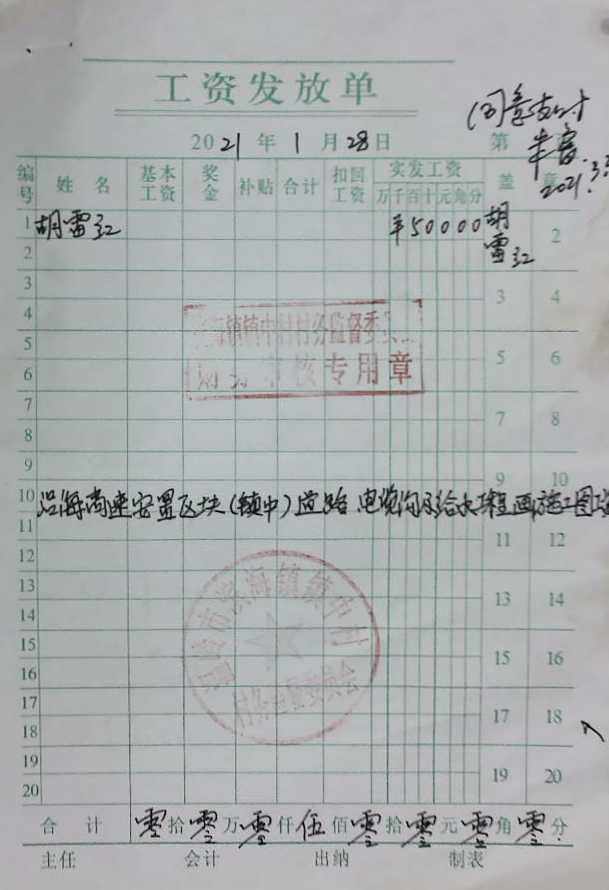 工资发放单
同意支付
2021年1月28日
第 章
2021.3.3
编号 姓名 基本工资 奖金 补贴 合计 扣回工资 实发工资 盖
万千百十元角分
1 胡雷红 ¥50000 胡雷红 2
2
3
4 3 4
镇中村村务监督委
5
审核专用章
6 5 6
7
8 7 8
9
10 9 10
沿海高速安置区块(镇中)道路、电缆沟及给水工程画施工图
11
12 11 12
13
14 13 14
温岭市滨海镇镇中村
15
16 15 16
村务监督委员会
17
18 17 18
19
20 19 20
合计 零拾零万零仟伍佰零拾零元零角零分
主任 会计 出纳 制表